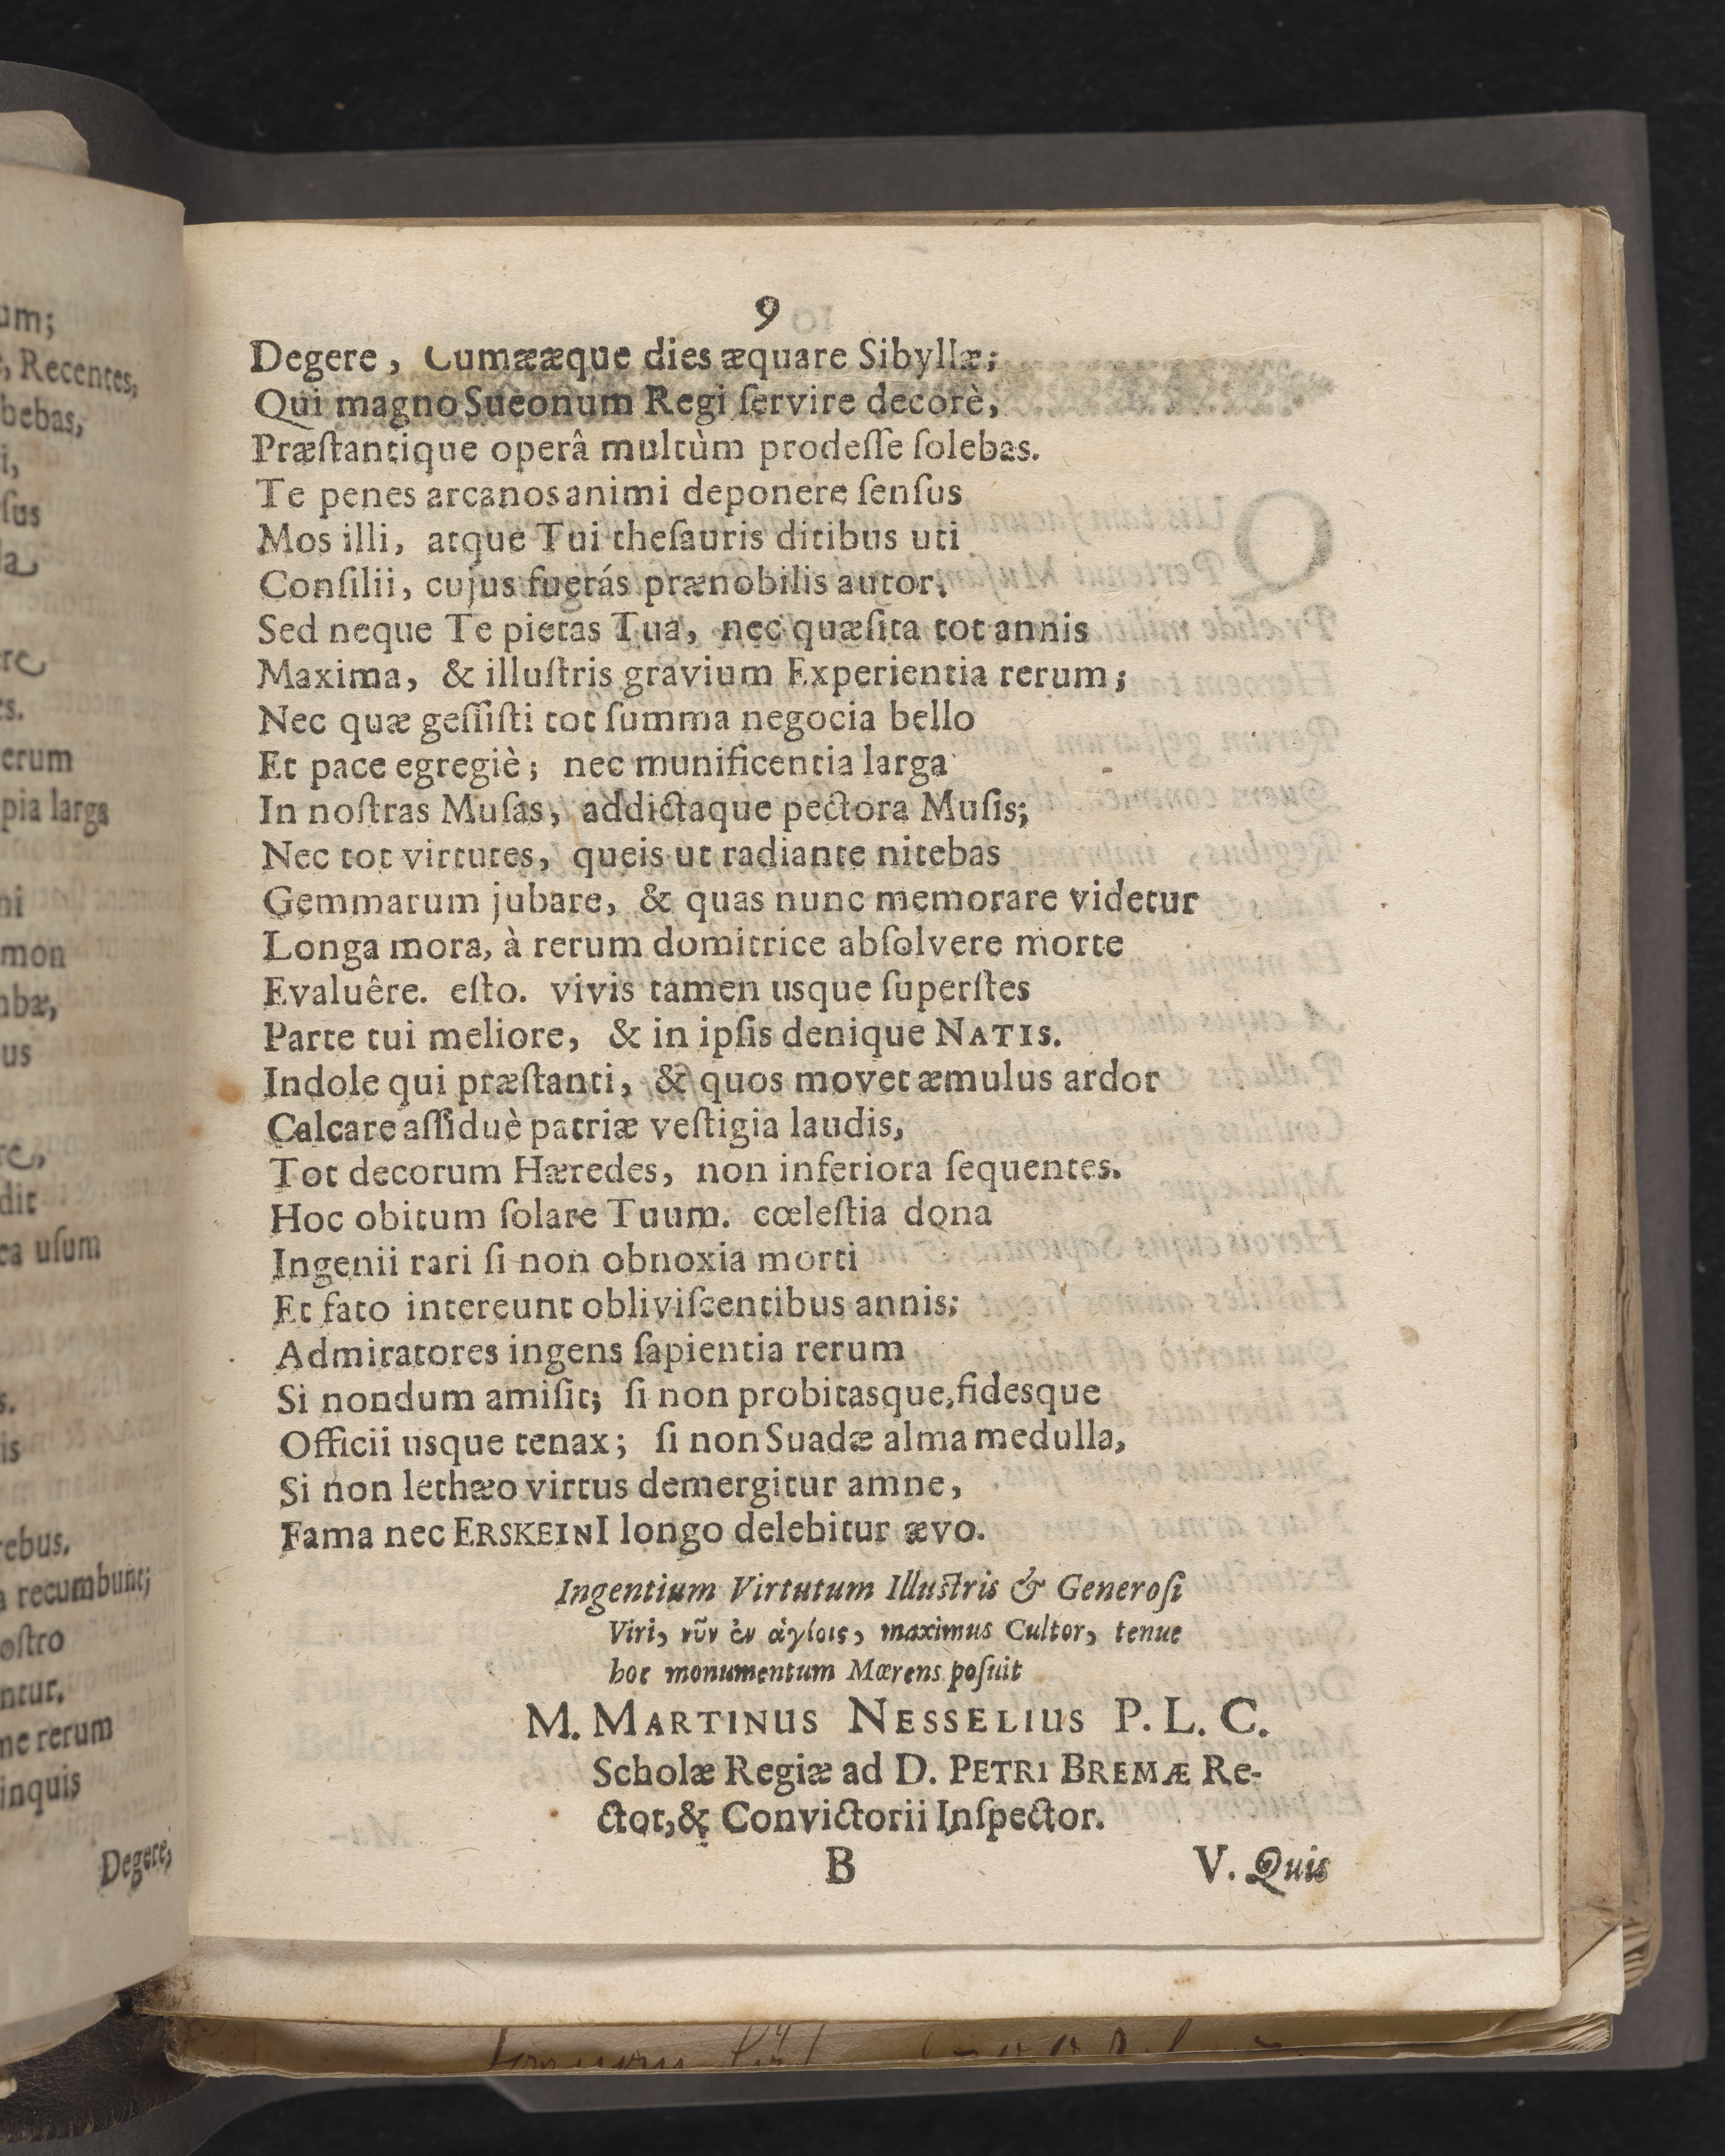 9
Degere, Cumææque dies æquare Sibyllæ;
Qui magno Sueonum Regi ſervire decorè,
Præſtantique operâ multùm prodeſſe ſolebas.
Te penes arcanos animi deponere ſenſus
Mos illi, atque Tui theſauris ditibus uti
Conſilii, cujus fuerás prænobilis autor.
Sed neque Te pietas Tua, nec quæſita tot annis
Maxima, & illuſtris gravium Experientia rerum;
Nec quæ geſſiſti tot ſumma negocia bello
Et pace egregiè; nec munificentia larga
In noſtras Muſas, addictaque pectora Muſis;
Nec tot virtutes, queis ut radiante nitebas
Gemmarum jubare, & quas nunc memorare videtur
Longa mora, à rerum domitrice abſolvere morte
Evaluêre. eſto. vivis tamen usque ſuperſtes
Parte tui meliore, & in ipſis denique NATIS.
Indole qui præſtanti, & quos movet æmulus ardor
Calcare aſſiduè patriæ veſtigia laudis,
Tot decorum Hæredes, non inferiora ſequentes.
Hoc obitum ſolare Tuum. cœleſtia dona
Ingenii rari ſi non obnoxia morti
Et fato intereunt obliviſcentibus annis;
Admiratores ingens ſapientia rerum
Si nondum amiſit; ſi non probitasque, fidesque
Officii usque tenax; ſi non Suadæ alma medulla,
Si non lethæo virtus demergitur amne,
Fama nec ERSKEINI longo delebitur ævo.
Ingentium Virtutum Illuſtris & Generoſi
Viri, νῦν ἐν ἁγίοις, maximus Cultor, tenue
hoc monumentum Mœrens poſuit
M. MARTINUS NESSELIUS P. L. C.
Scholæ Regiæ ad D. PETRI BREMÆ Re-
ctor, & Convictorii Inſpector.
B V. Quis
um;
Recentes,
bebas,
erum
pia larga
mon
dit
ea uſum
recumbunt;
ntur.
me rerum
inquis
Degere,